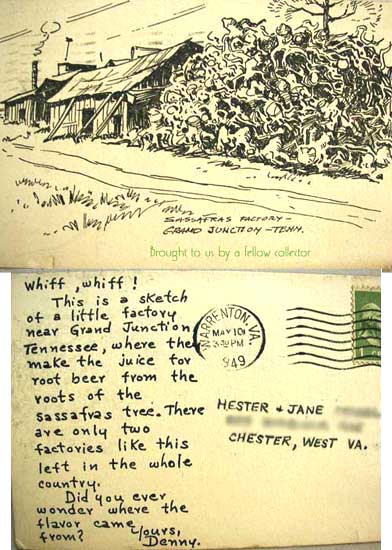 SASSAFRAS FACTORY -
GRAND JUNCTION - TENN.
Brought to us by a fellow collector
Whiff, whiff!
This is a sketch
of a little factory
near Grand Junction
Tennessee, where they
make the juice for
root beer from the
roots of the
sassafras tree. There
are only two
factories like this
left in the whole
country.
Did you ever
wonder where the
flavor came
from? Yours,
Denny.
WARRENTON, VA.
MAY 10
949
HESTER & JANE
CHESTER, WEST VA.